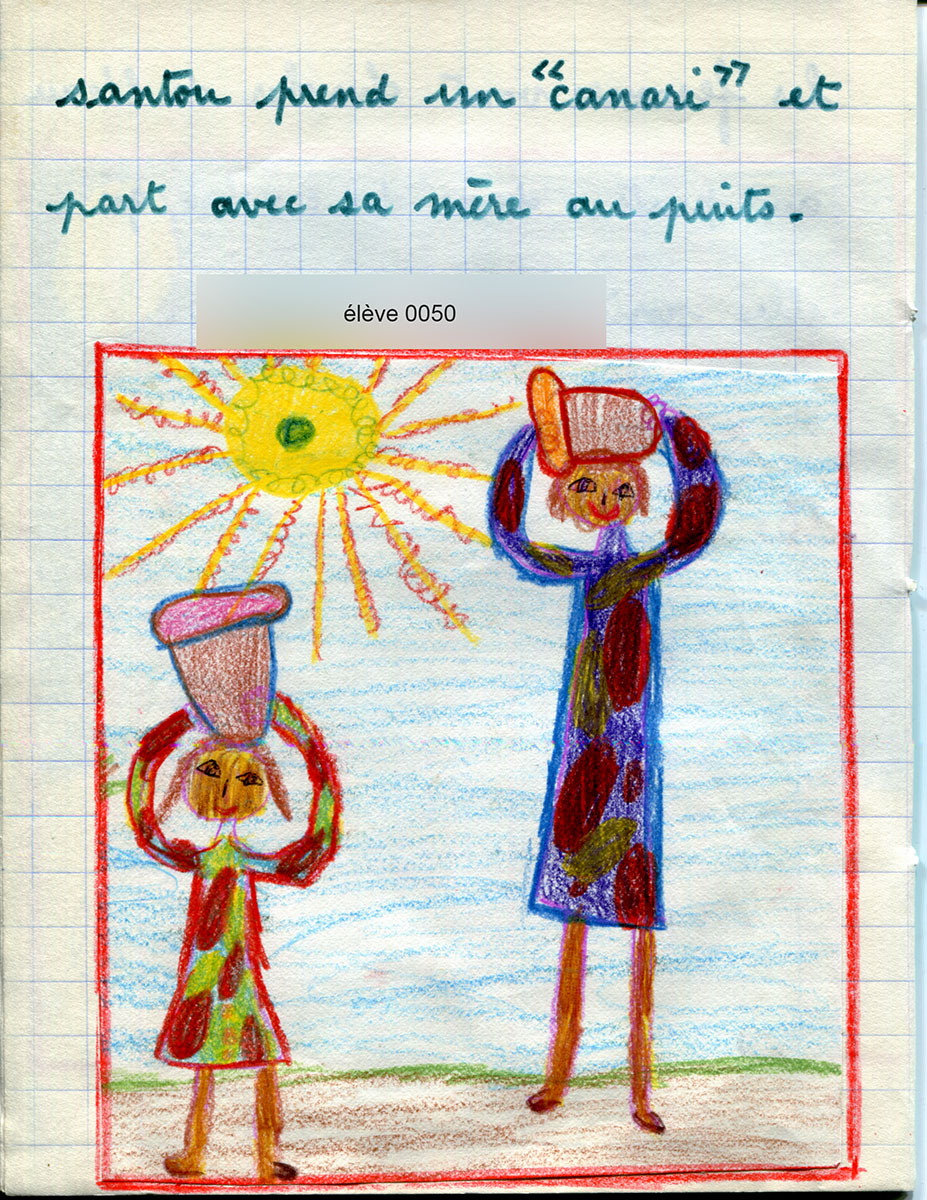 santou prend un "canari" et
part avec sa mère au puits.
élève 0050